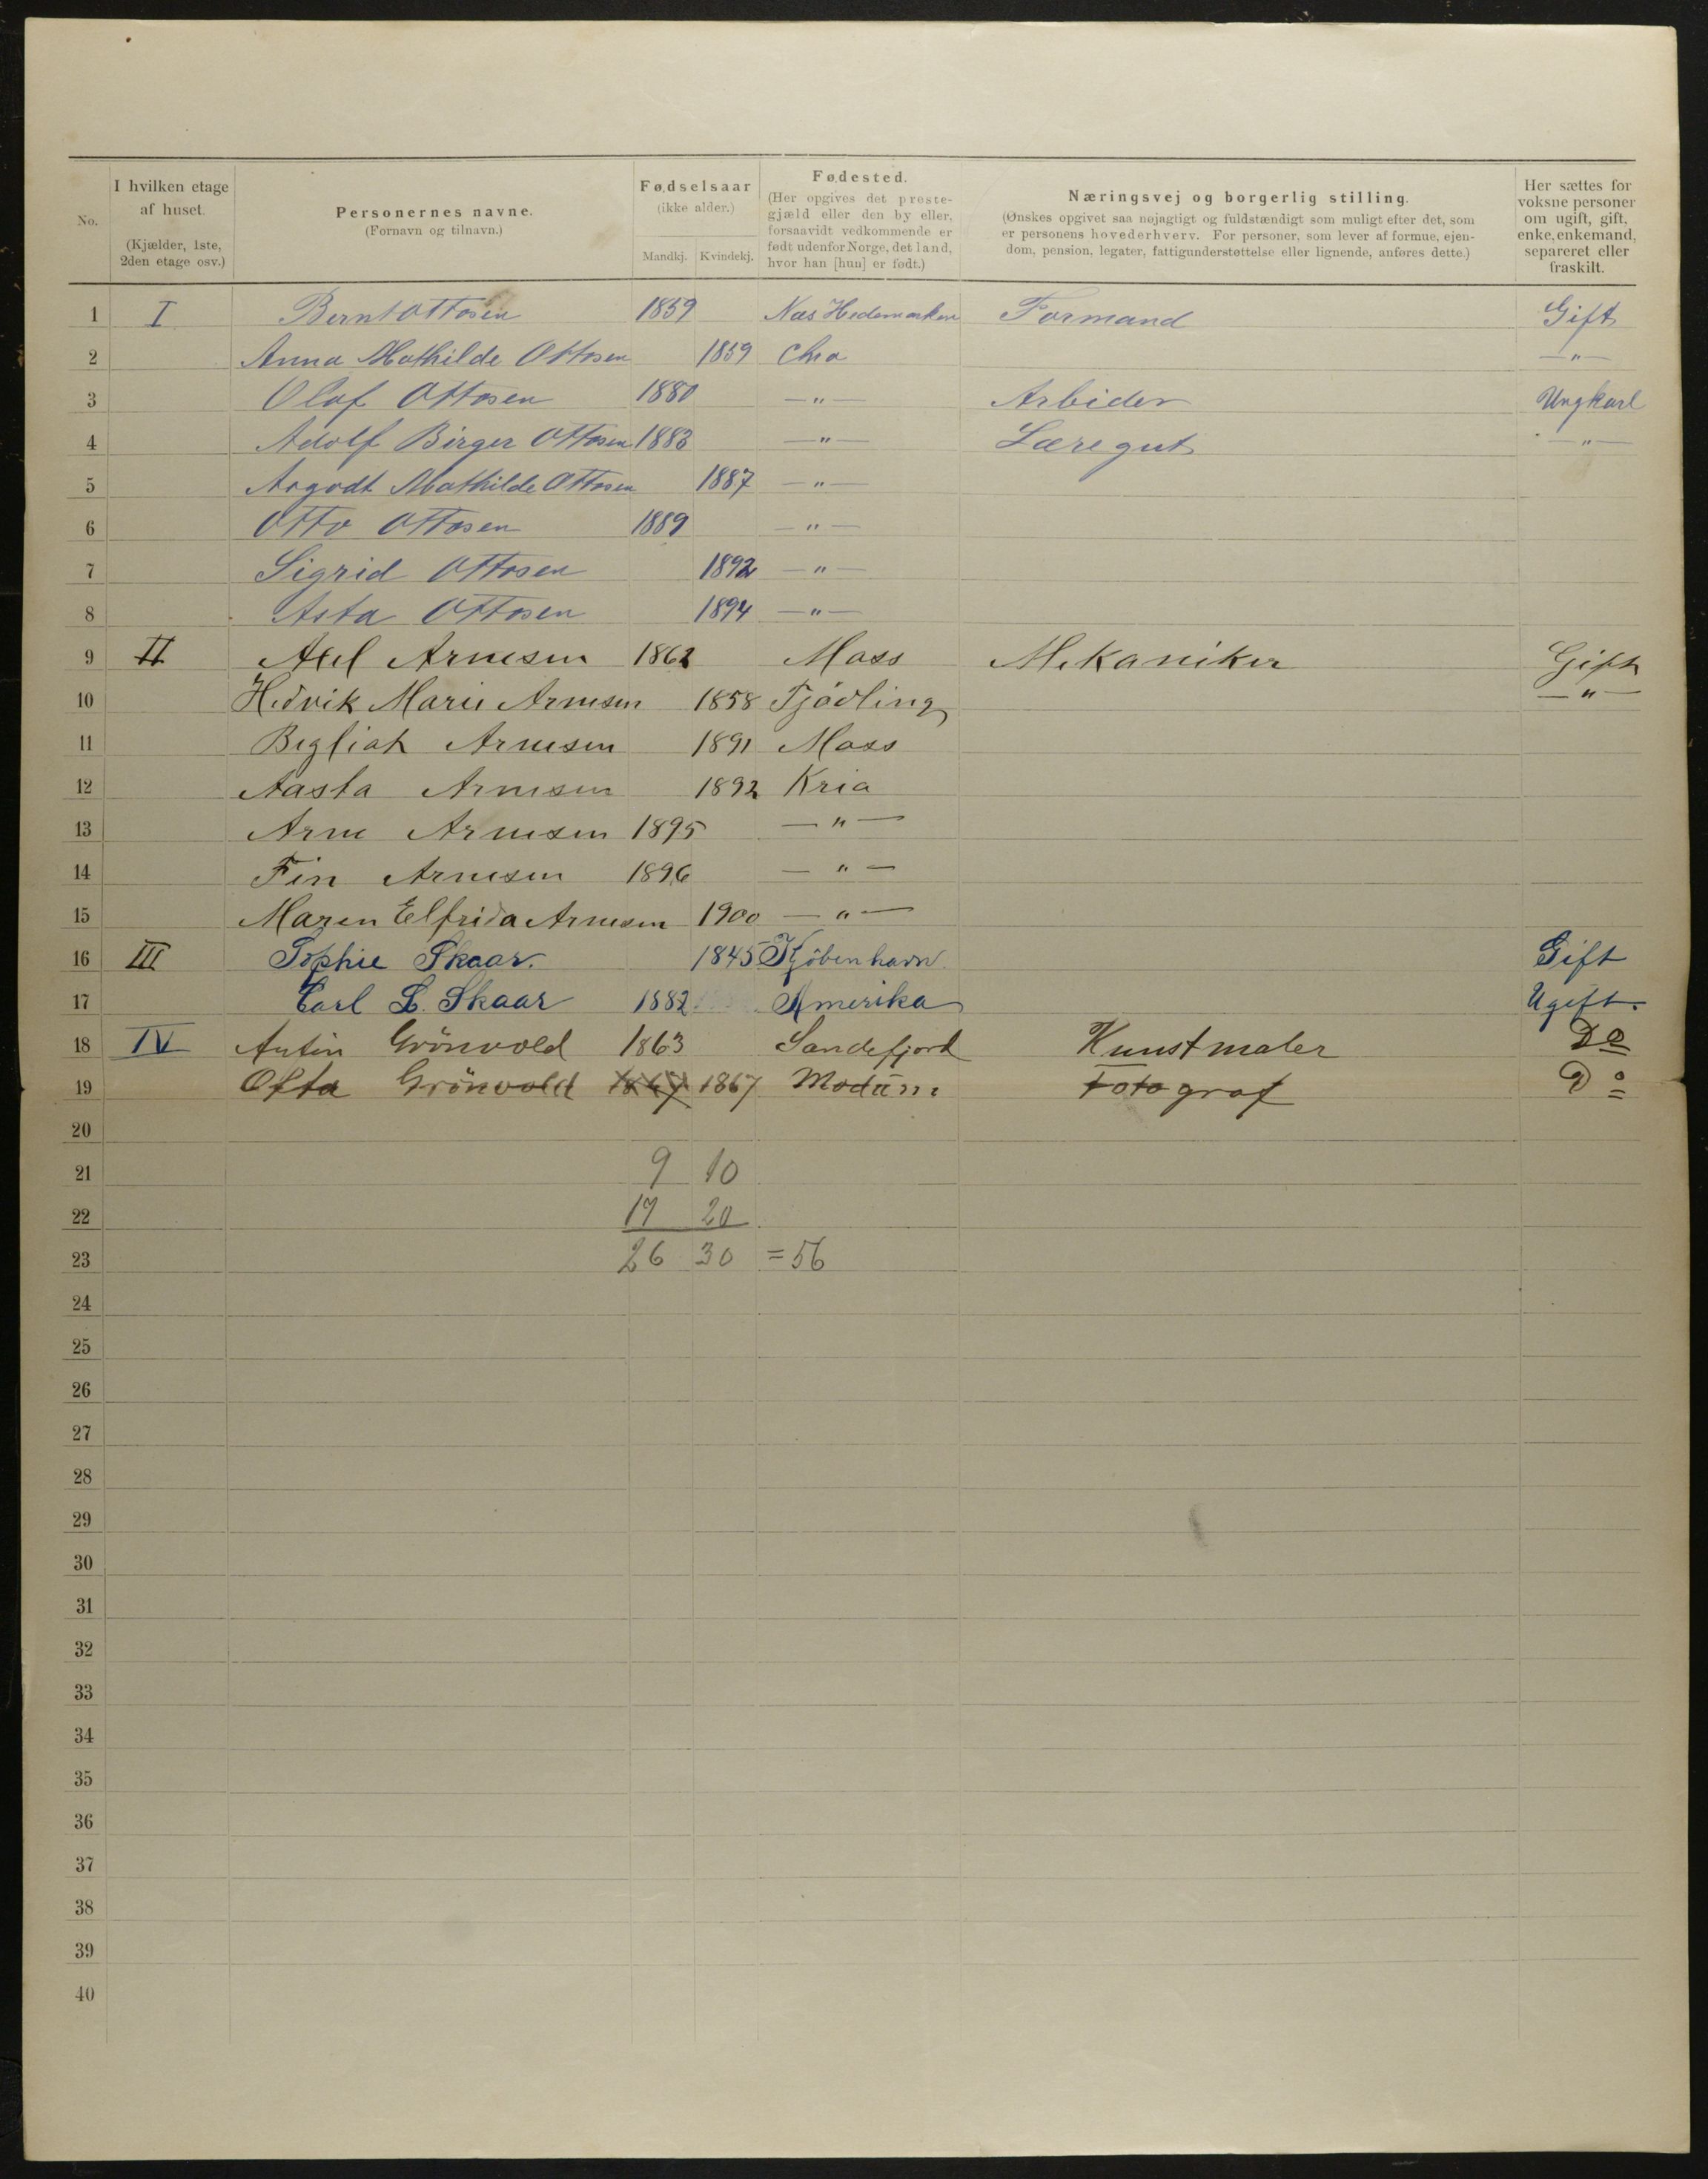 No.
I hvilken etage af huset.
(Kjælder, 1ste, 2den etage osv.)
Personernes navne.
(Fornavn og tilnavn.)
Fødselsaar
(ikke alder.)
Mandkj. Kvindekj.
Fødested.
(Her opgives det preste-
gjæld eller den by eller,
forsaavidt vedkommende er
født udenfor Norge, det land,
hvor han [hun] er født.)
Næringsvej og borgerlig stilling.
(Ønskes opgivet saa nøjagtigt og fuldstændigt som muligt efter det, som
er personens hovederhverv. For personer, som lever af formue, ejen-
dom, pension, legater, fattigunderstøttelse eller lignende, anføres dette.)
Her sættes for
voksne personer
om ugift, gift,
enke, enkemand,
separeret eller
fraskilt.
1 I Bernt Ottosen 1859 Næs Hedemarken Formand Gift
2 Anna Mathilde Ottosen 1859 Chra —"—
3 Olaf Ottosen 1880 —"— Arbider Ungkarl
4 Adolf Birger Ottosen 1883 —"— Læregut —"—
5 Mathilde Ottosen 1887 —"—
6 Otto Ottosen 1889 —"—
7 Sigrid Ottosen 1892 —"—
8 Asta Ottosen 1894 —"—
9 II Axel Arnesen 1862 Moss Mekaniker Gift
10 Hedvik Marie Arnesen 1858 Tjödling —"—
11 Arnesen 1891 Moss
12 Aasta Arnesen 1892 Kria
13 Arne Arnesen 1895 —"—
14 Fin Arnesen 1896 —"—
15 Maren Elfrida Arnesen 1900 —"—
16 III Sophie Skaar. 1845 Kjöbenhavn. Gift
17 Carl L. Skaar 1882 Amerika Ugift.
18 IV Anton Grönvold 1863 Sandefjord Kunstmaler Do
19 Grönvold 1867 1867 Modum Fotograf Do
20
21 9 10
22 17 20
23 26 30 = 56
24
25
26
27
28
29
30
31
32
33
34
35
36
37
38
39
40